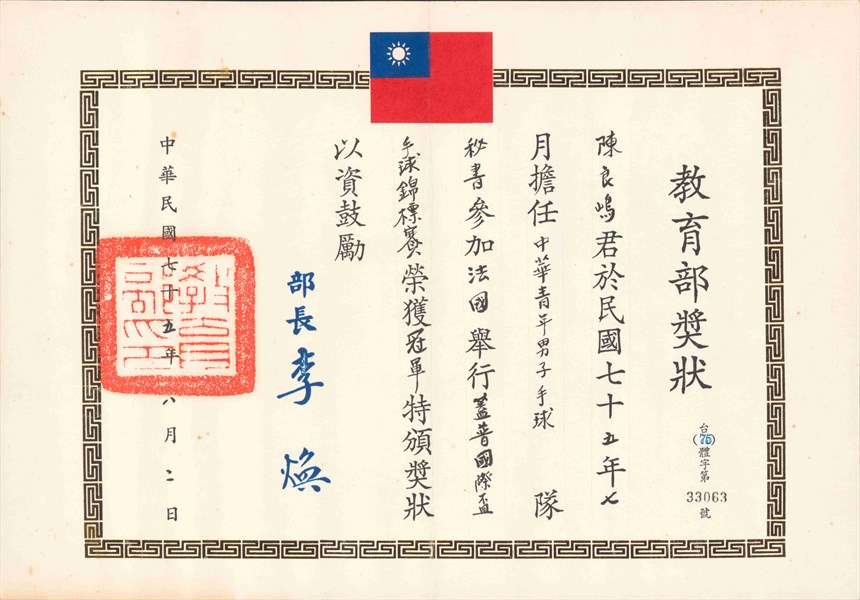 教育部獎狀
台(75)體字第33063號
陳良鳴君於民國七十五年七
月擔任中華青年男子手球隊
秘書參加法國舉行蓋普國際盃
手球錦標賽榮獲冠軍特頒獎狀
以資鼓勵
部長李煥
中華民國七十五年八月二日
教育部印